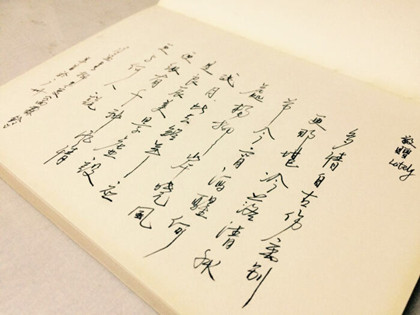 敬赠
Lately
多情自古伤离别
更那堪冷落清秋
节今宵酒醒何
處杨柳岸晓风
残月此去经年应
是良辰美景虚设便
纵有千种风情
更与何人说